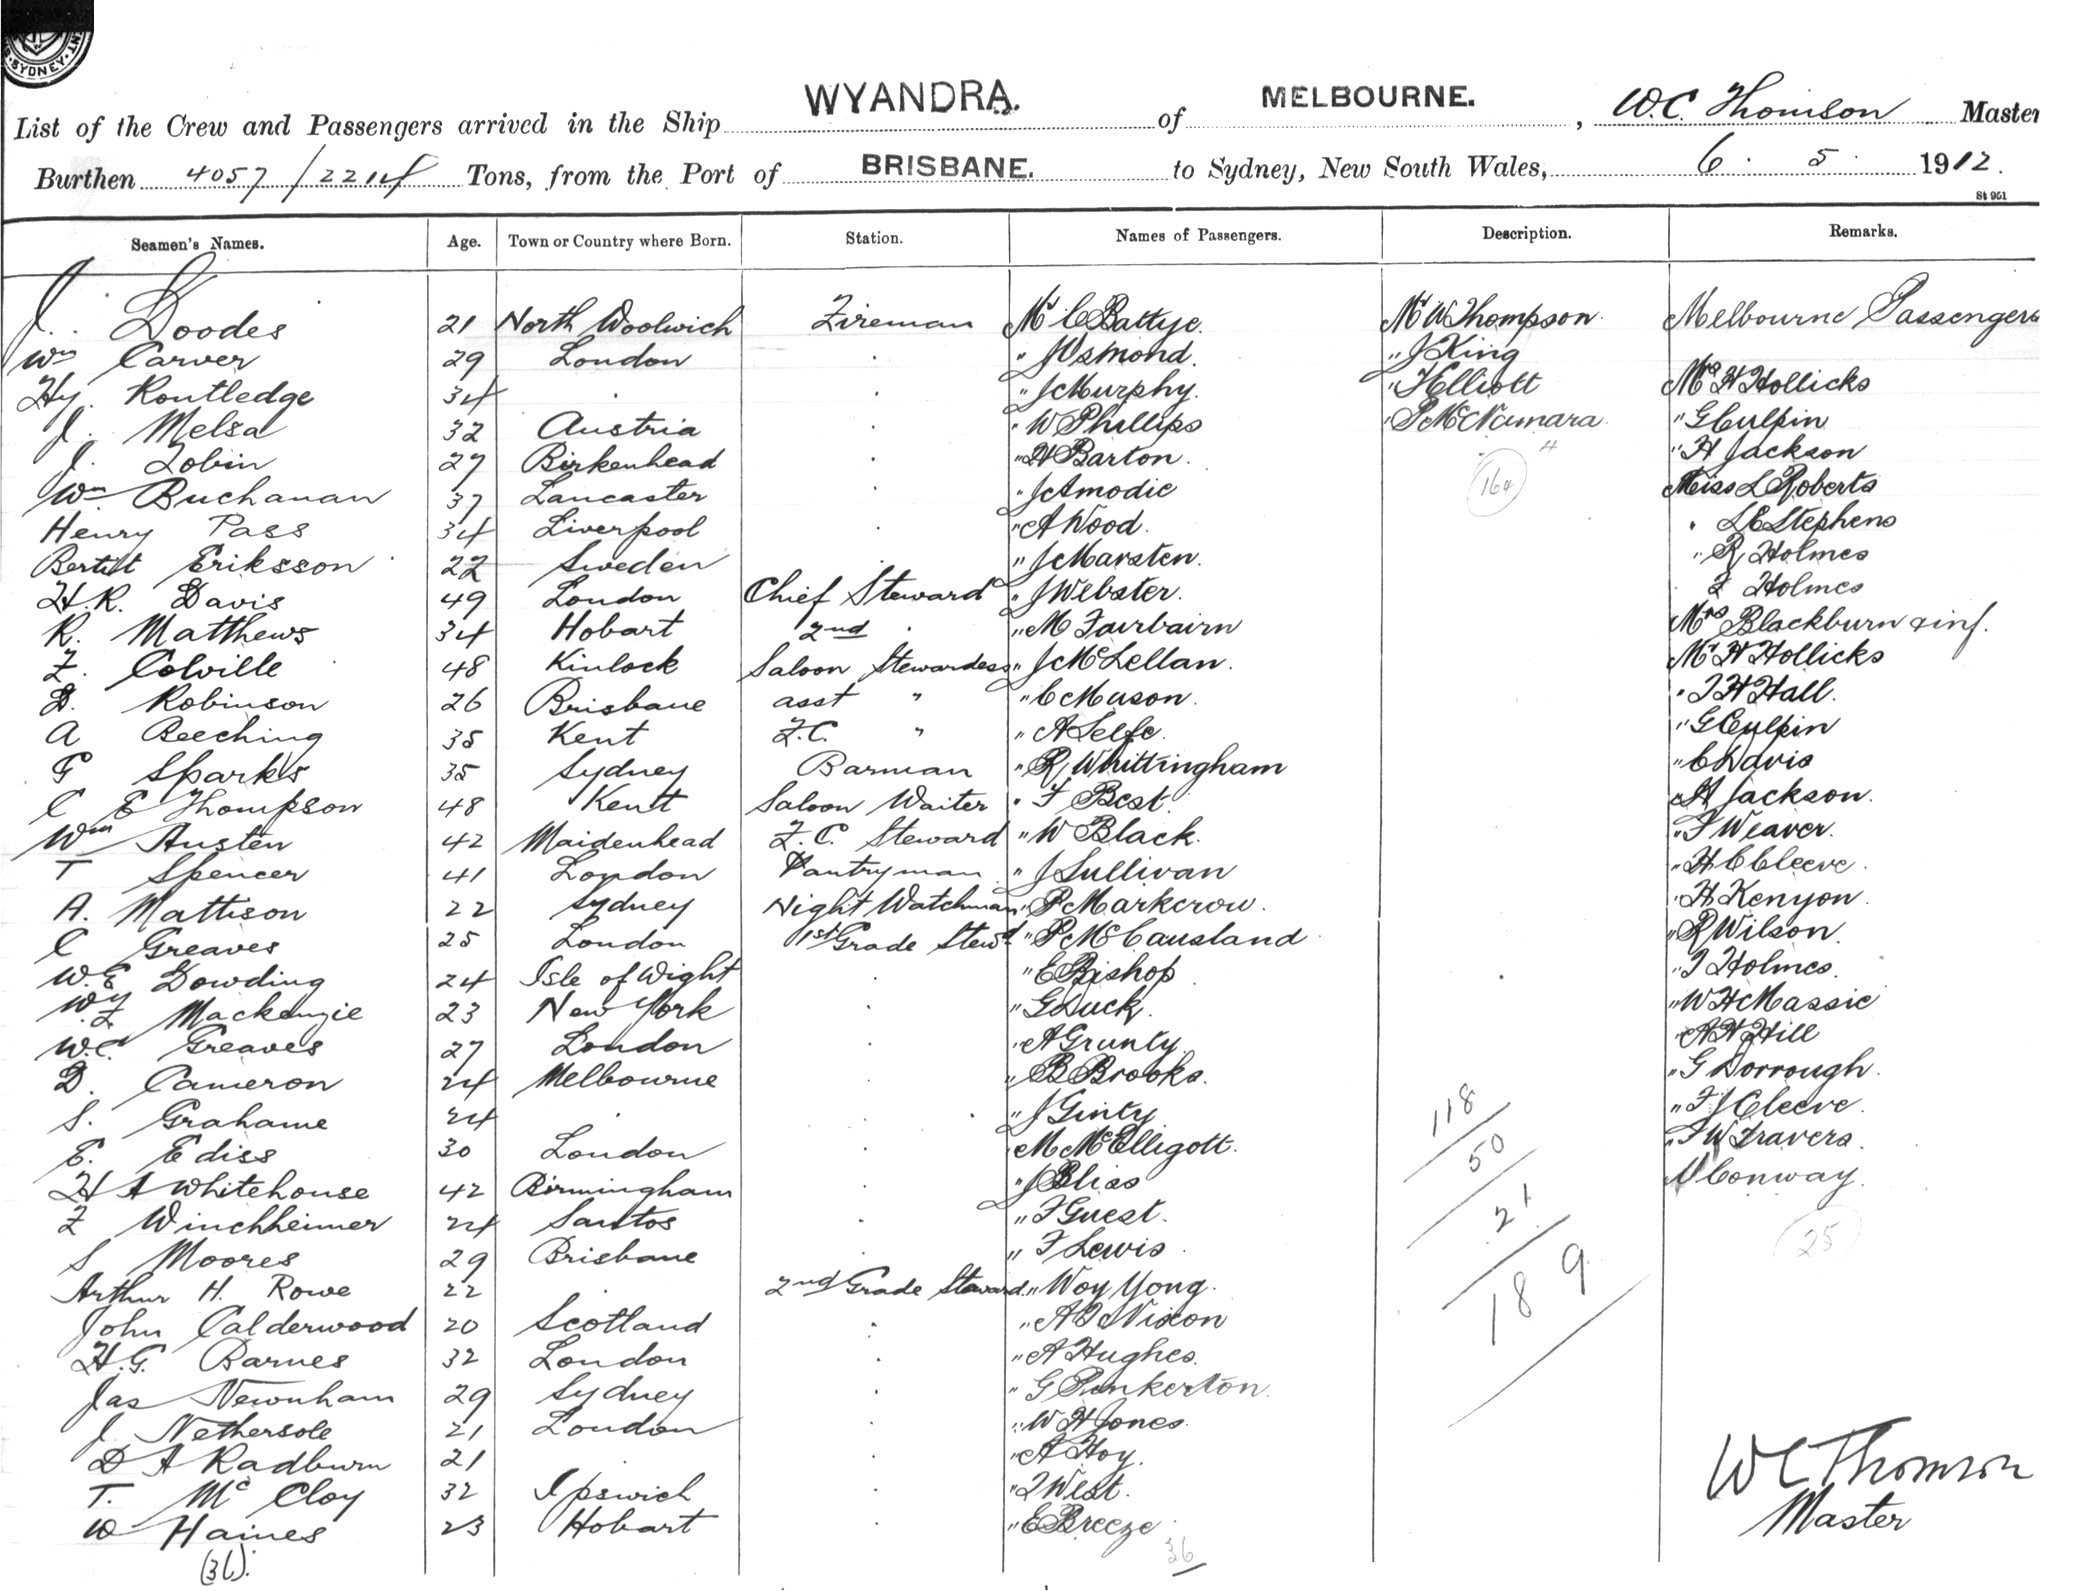 SYDNEY
WYANDRA. MELBOURNE. W.C. Thomson
List of the Crew and Passengers arrived in the Ship WYANDRA. of MELBOURNE. , W.C. Thomson Master
Burthen 4057/2214 Tons, from the Port of BRISBANE. to Sydney, New South Wales, 6. 5. 1912.
St 951
Seamen's Names. Age. Town or Country where Born. Station. Names of Passengers. Description. Remarks.
J. Doodes 21 North Woolwich Fireman Mr C Battye. Mr W Thompson. Melbourne Passengers
Wm Carver 29 London . " J Osmond. " J King
Hy. Routledge 34 . . " J Murphy. " Elliott Mrs H Hollicks
J. Melsa 32 Austria . " W Phillips " P McNamara. " G Culpin
J. Tobin 27 Birkenhead . " H Barton. " H Jackson
Wm Buchanan 37 Lancaster . " J Amodie 164 Miss L Roberts
Henry Pass 34 Liverpool . " A Wood. " L E Stephens
Bertil Eriksson 22 Sweden . " J Marsten. " R Holmes
H.R. Davis 49 London Chief Steward " J Webster. " F Holmes
R. Matthews 34 Hobart 2nd " " M Fairbairn Mrs Blackburn & inf.
F. Colville 48 Kinlock Saloon Stewardess " J McLellan. Mr H Hollicks
D. Robinson 26 Brisbane asst " " C Mason. " T H Hall.
A Beeching 35 Kent F.C. " " A Selfe. " G Culpin
G Sparks 35 Sydney Barman " R Whittingham " C Davis
C E Thompson 48 Kent Saloon Waiter " F Best. " H Jackson.
Wm Austen 42 Maidenhead F.C. Steward " W Black. " F Weaver.
T Spencer 41 London Pantryman " J Sullivan " H C Cleeve.
A. Mattison 22 Sydney Night Watchman " P Markcrow. " H Kenyon.
C Greaves 25 London 1st Grade Stewd " P McCausland " R Wilson.
W.E Dowding 24 Isle of Wight . " E Bishop " T Holmes.
Wm F. Mackenzie 23 New York . " G Duck. " W H Massie
W.C. Greaves 27 London . " A Grunty " A H Hill
D. Cameron 24 Melbourne . " B Brooks. " G Dorrough.
S. Grahame 24 . . " J Ginty 118 " F J Cleeve.
E. Ediss 30 London . " M McElligott. 50 " F W Travers.
H A Whitehouse 42 Birmingham . " J Bliss 21 N Conway.
F Winchheimer 24 Santos . " F Guest. 189
S Moores 29 Brisbane . " F Lewis 25
Arthur H. Rowe 22 . 2nd Grade Steward " Woy Yong.
John Calderwood 20 Scotland . " A J Nixon
H.G. Barnes 32 London . " A Hughes.
Jas Newnham 29 Sydney . " G Pinkerton.
J. Nethersole 21 London . " W H Jones.
D A Radburn 21 . . " A Hoy.
T. McCloy 32 Ipswich . " J West.
W Haines 23 Hobart . " E Breeze
(36). 36
W C Thomson
Master